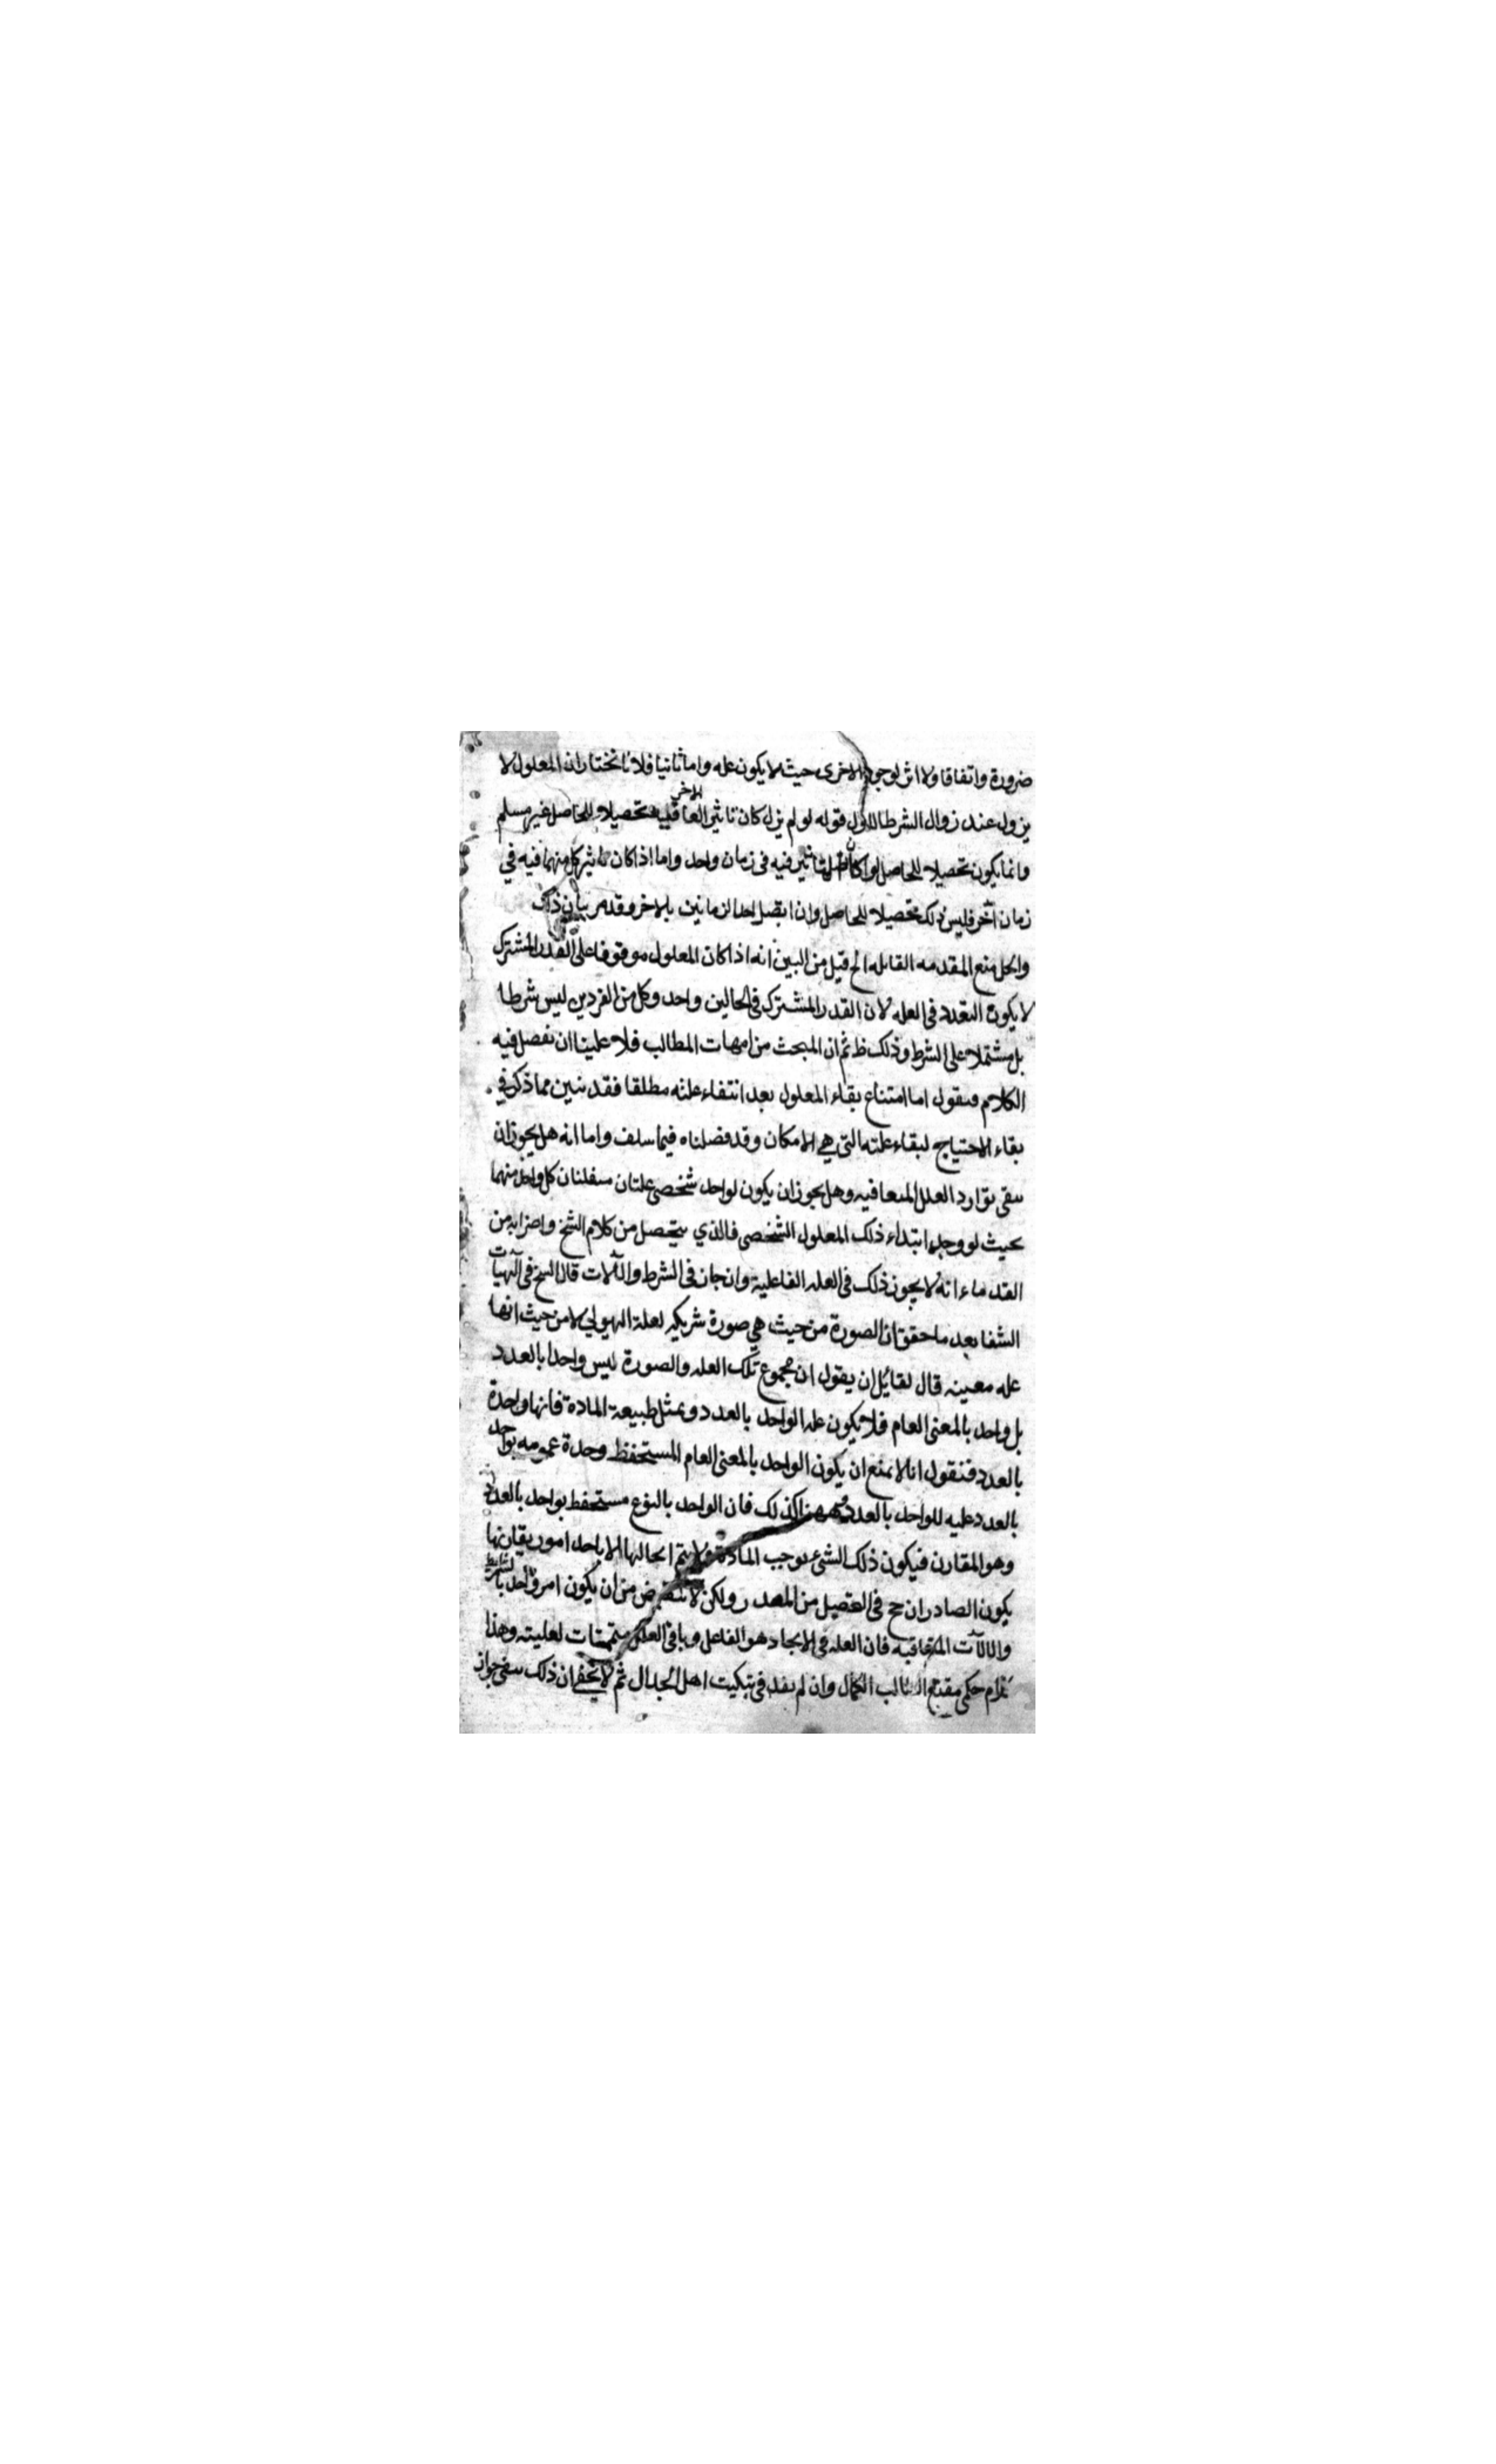 ضرورة واتفاقا ولا اثر لوجود الاخرى حيث لا يكون عله واما ثانيا فلانا نختار ان المعلول لا
يزول عند زوال الشرط الاول قوله لو لم يزل كان تاثير العاقبه الاخر تحصيلا للحاصل غير مسلم
وانما يكون تحصيلا للحاصل لو كان التاثير فيه فى زمان واحد واما اذا كان تاثير كل منهما فيه في
زمان آخر فليس ذلك تحصيلا للحاصل وان اتصل احد الزمانين بالاخر وقد مر بيان ذلك
والحل منع المقدمه القايله الح قيل من البين انه اذا كان المعلول موقوفا على القدر المشترك
لا يكون التعدد فى العله لان القدر المشترك فى الحالين واحد وكل من الفردين ليس شرطا
بل مشتملا على الشرط وذلك ظ ثم ان المبحث من امهات المطالب فلا علينا ان نفصل فيه
الكلام فنقول اما امتناع بقاء المعلول بعد انتفاء علته مطلقا فقد تبين مما ذكر في
بقاء الاحتياج لبقاء علته التى هي الامكان وقد فصلناه فيما سلف واما انه هل يجوز ان
يبقى بتوارد العلل المتعاقبه وهل يجوز ان يكون لواحد شخصى علتان مستقلتان كل واحد منهما
بحيث لو وجد ابتداء ذلك المعلول الشخصى فالذي يتحصل من كلام الشيخ واضرابه من
القدماء انه لا يجوز ذلك فى العله الفاعلية وان جاز فى الشرط والآلات قال الشيخ فى الهيات
الشفا بعد ما حقق ان الصورة من حيث هي صورة شريكه لعلة الهيولي لا من حيث انها
عله معينه قال لقائل ان يقول ان مجموع تلك العله والصورة ليس واحدا بالعدد
بل واحد بالمعنى العام فلا يكون عله الواحد بالعدد ومثل طبيعة المادة فانها واحدة
بالعدد فنقول انا لا نمنع ان يكون الواحد بالمعنى العام المستحفظ وحدة عمومه بواحد
بالعدد عليه للواحد بالعدد وههنا كذلك فان الواحد بالنوع مستحفظ بواحد بالعدد
وهو المقارن فيكون ذلك الشئ يوجب المادة ولا يتم ايجابها الا باحد امور يقارنها
يكون الصادر ان ح فى التحصيل من المصدر ولكن لا من ان يكون امر واحد بالشرايط
والالآت المتعاقبه فان العله فى الايجاد هو الفاعل وباقى العلل متممات لعليته وهذا
كلام حكمى مقنع الطالب الكمال وان لم يفد فى تبكيت اهل الجدال ثم لا يخفى ان ذلك ينفى جواز